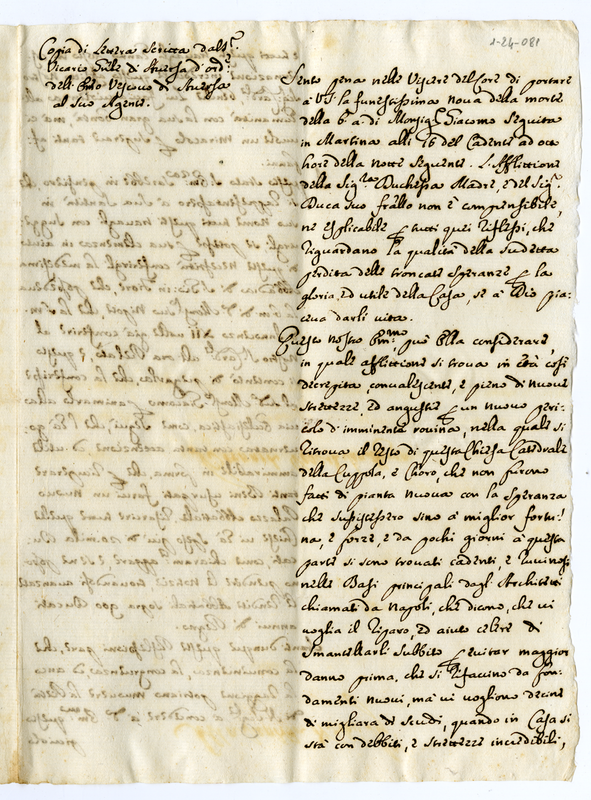 1-24-081
Copia di Lettera scritta dal Sr.
Vicario Gnle di Aversa d'ordne
dell'Emo Vescovo di Aversa
al suo Agente.
Sento pena nelle Viscere del Core di portare
à VS. la funestissima nuova della morte
della b. a. di Monsigr. Giacomo seguita
in Martina alli 16 del Cadente ad otto
hore della notte seguente. L'Afflittione
della Sigra. Duchessa Madre, e del Sigr.
Duca suo fratello non è comprensibile,
ne esplicabile per tutti quei riflessi, che
riguardano la qualità della sudetta
perdita delle troncate speranze per la
gloria, ed utile della Casa, se à Dio pia-
ceva darli vita.
Questo nostro Emmo può Ella considerare,
in quale afflittione si trova in età così
decrepita, convalescente, e pieno di nuove
strettezze, ed angustie per un nuovo peri-
colo d'imminente rovina, nella quale si
ritrova il resto di questa Chiesa Cattedrale
della Cuppola, e Choro, che non furono
fatti di pianta nuova con la speranza
che sussistessero sino à miglior fortu-
na, e forze, e da pochi giorni à questa
parte si sono trovati cadenti, e ruinosi
nelle Basi principali dagl'Architetti
chiamati da Napoli, che dicono, che vi
voglia il riparo, ed aiuto celere di
smantellarli subbito per evitar maggior
danno prima, che si rifaccino da fon-
damenti nuovi, mà vi vogliono decine
di migliara di scudi, quando in Casa si
stà con debbiti, e strettezze incredibili,